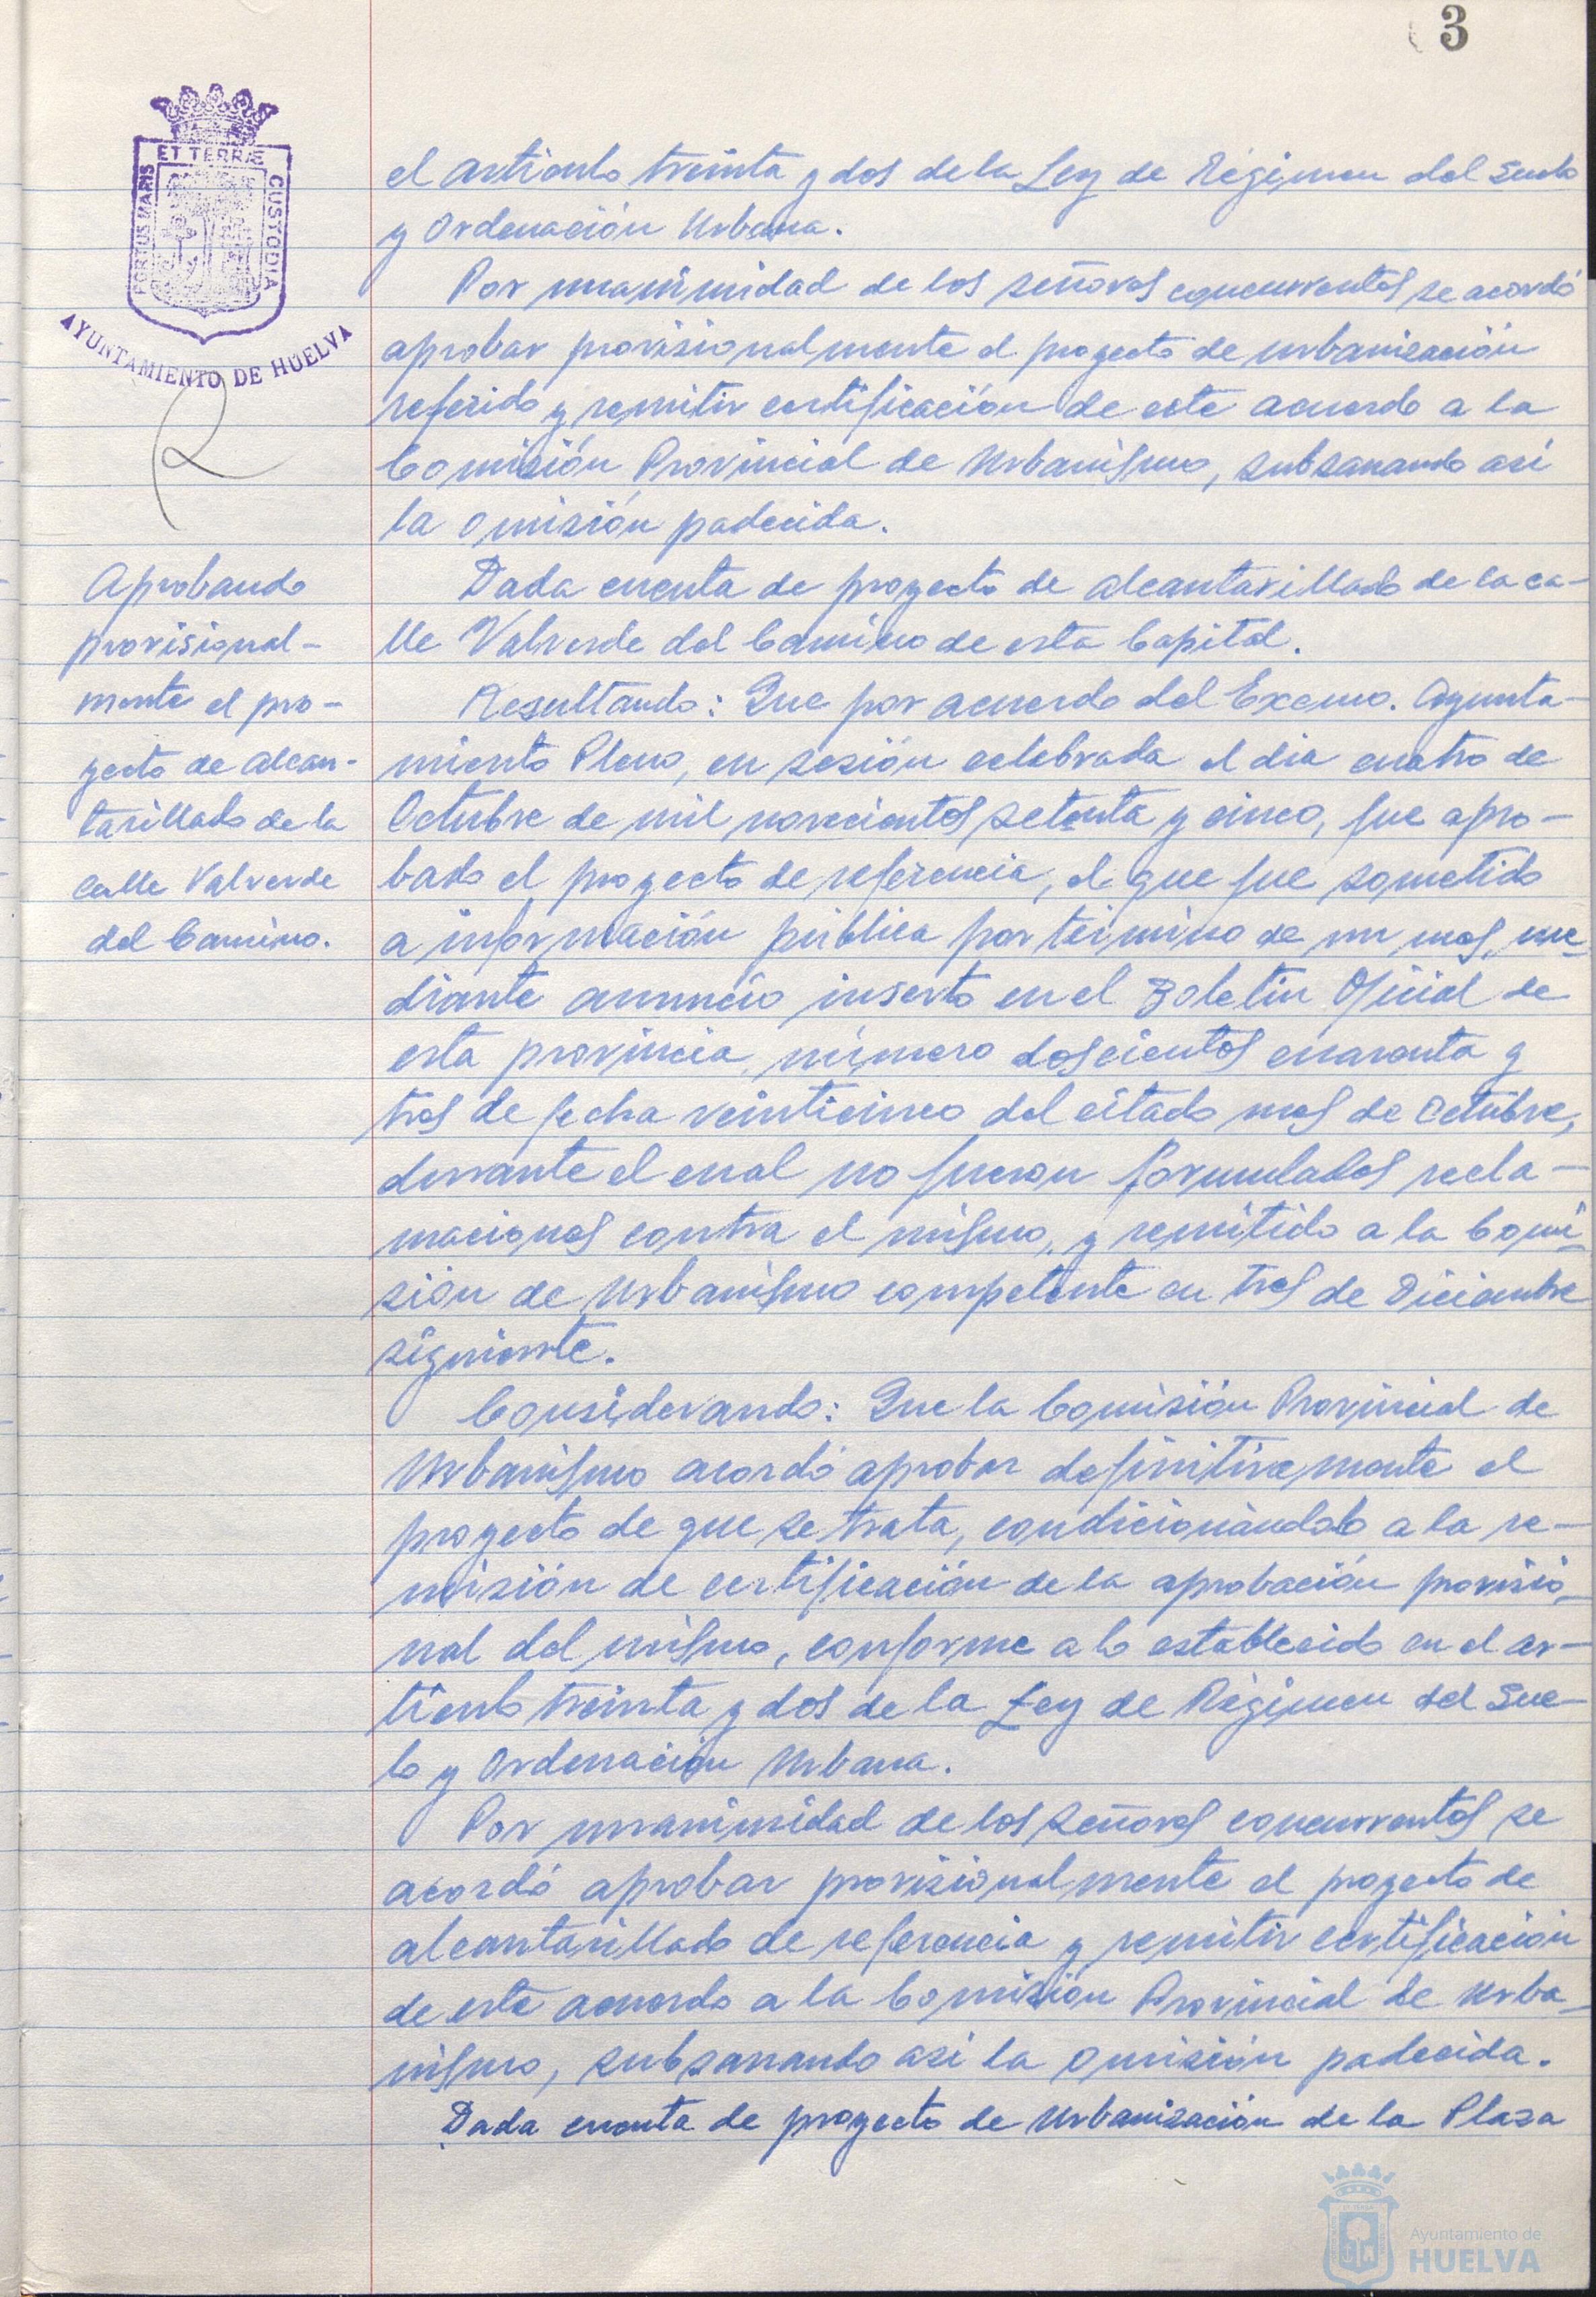 3
ET TERRÆ
PORTUS MARIS
CUSTODIA
AYUNTAMIENTO DE HUELVA
el artículo treinta y dos de la Ley de Régimen del Suelo
y Ordenación Urbana.
Por unanimidad de los señores concurrentes se acordó
aprobar provisionalmente el proyecto de urbanización
referido y remitir certificación de este acuerdo a la
Comisión Provincial de Urbanismo, subsanando así
la omisión padecida.
Aprobando
provisional-
mente el pro-
yecto de alcan-
tarillado de la
calle Valverde
del Camino.
Dada cuenta de proyecto de alcantarillado de la ca-
lle Valverde del Camino de esta Capital.
Resultando: Que por acuerdo del Excmo. Ayunta-
miento Pleno, en sesión celebrada el dia cuatro de
Octubre de mil novecientos setenta y cinco, fue apro-
bado el proyecto de referencia, el que fue sometido
a información pública por término de un mes, me-
diante anuncio inserto en el Boletin Oficial de
esta provincia, número doscientos cuarenta y
tres de fecha veinticinco del citado mes de Octubre,
durante el cual no fueron formulados recla-
maciones contra el mismo, y remitido a la Comi-
sión de Urbanismo competente en tres de Diciembre
siguiente.
Considerando: Que la Comisión Provincial de
Urbanismo acordó aprobar definitivamente el
proyecto de que se trata, condicionándolo a la re-
misión de certificación de la aprobación provisio-
nal del mismo, conforme a lo establecido en el ar-
tículo treinta y dos de la Ley de Régimen del Sue-
lo y Ordenación Urbana.
Por unanimidad de los señores concurrentes se
acordó aprobar provisionalmente el proyecto de
alcantarillado de referencia y remitir certificación
de este acuerdo a la Comisión Provincial de Urba-
nismo, subsanando así la omisión padecida.
Dada cuenta de proyecto de Urbanización de la Plaza
Ayuntamiento de
HUELVA